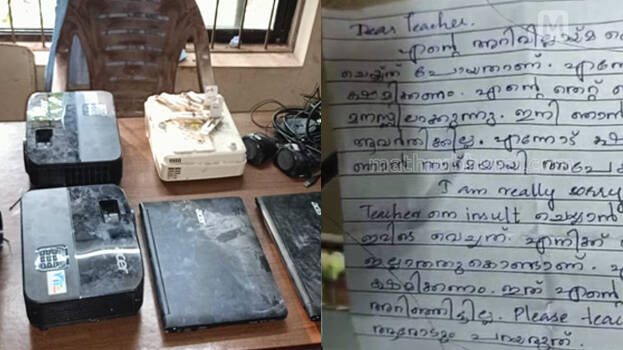 acer
acer
Dear Teacher.
എന്റെ അറിവില്ലായ്മ
ചെയ്ത് പോയതാണ്.
ക്ഷമിക്കണം. എന്റെ തെറ്റ്
മനസ്സിലാക്കുന്നു. ഇനി ഞാൻ
ആവർത്തിക്കില്ല. എന്നോട്
ഞാൻ താഴ്മയായി
I am really sorry
Teacher നെ insult ചെയ്യാൻ
ഇവിടെ വെച്ചത്. എനിക്ക്
ഇല്ലാത്തതുകൊണ്ടാണ്.
ക്ഷമിക്കണം. ഇത് എന്റെ
അറിഞ്ഞിട്ടില്ല. Please
ആരോടും പറയരുത്.
M